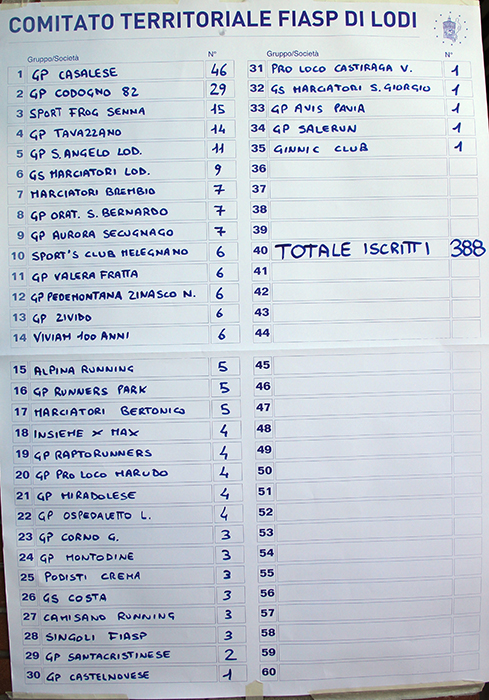 COMITATO TERRITORIALE FIASP DI LODI
Gruppo/Società N°
1 GP CASALESE 46
2 GP CODOGNO 82 29
3 SPORT FROG SENNA 15
4 GP TAVAZZANO 14
5 GP S.ANGELO LOD. 11
6 GS MARCIATORI LOD. 9
7 MARCIATORI BREMBIO 7
8 GP ORAT. S. BERNARDO 7
9 GP AURORA SECUGNAGO 7
10 SPORT'S CLUB MELEGNANO 6
11 GP VALERA FRATTA 6
12 GP PEDEMONTANA ZINASCO N. 6
13 GP ZIVIDO 6
14 VIVIAM 100 ANNI 6
15 ALPINA RUNNING 5
16 GP RUNNERS PARK 5
17 MARCIATORI BERTONICO 5
18 INSIEME X MAX 4
19 GP RAPTORUNNERS 4
20 GP PRO LOCO MARUDO 4
21 GP MIRADOLESE 4
22 GP OSPEDALETTO L. 4
23 GP CORNO G. 3
24 GP MONTODINE 3
25 PODISTI CREMA 3
26 GS COSTA 3
27 CAMISANO RUNNING 3
28 SINGOLI FIASP 3
29 GP SANTACRISTINESE 2
30 GP CASTELNOVESE 1
Gruppo/Società N°
31 PRO LOCO CASTIRAGA V. 1
32 GS MARCIATORI S.GIORGIO 1
33 GP AVIS PAVIA 1
34 GP SALERUN 1
35 GINNIC CLUB 1
36
37
38
39
40 TOTALE ISCRITTI 388
41
42
43
44
45
46
47
48
49
50
51
52
53
54
55
56
57
58
59
60